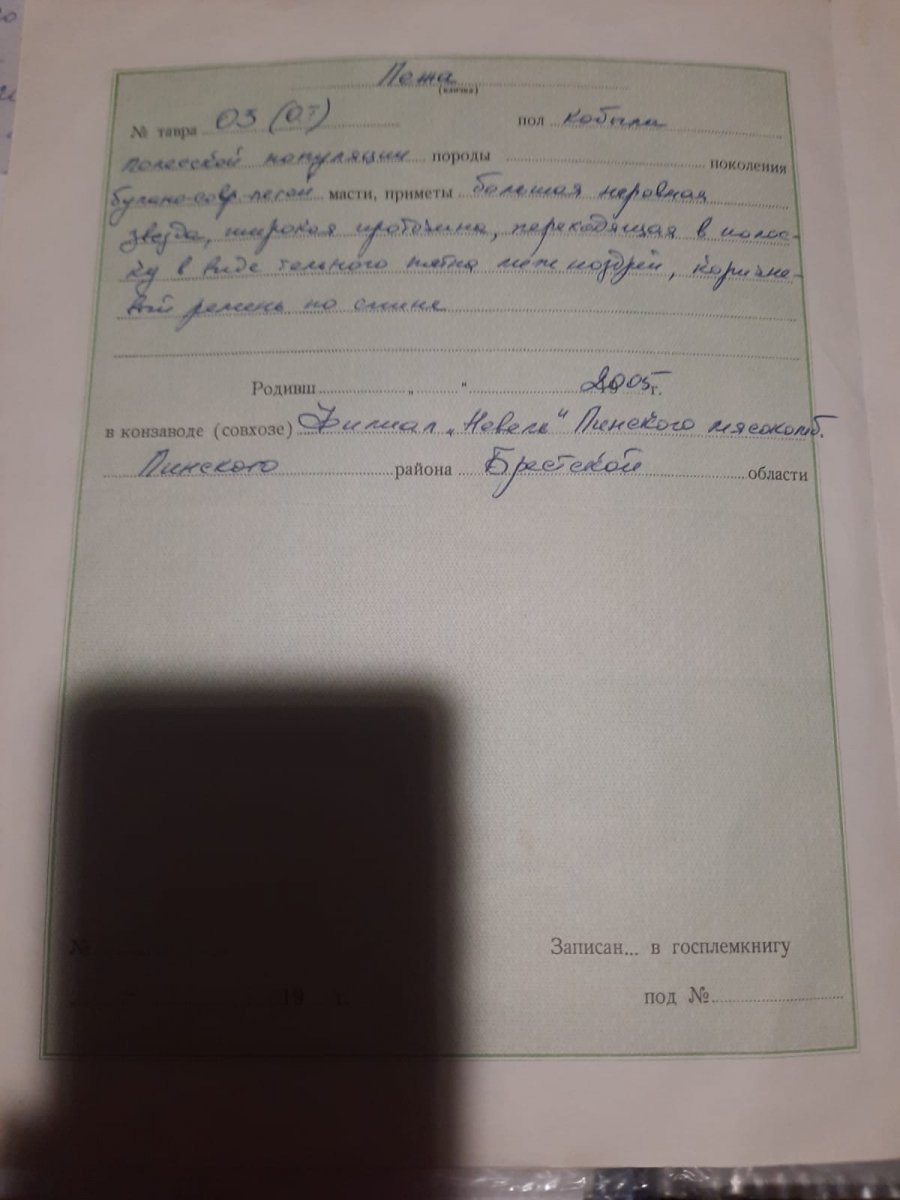 Пежа
(кличка)
№ тавра 03 (0.Т) пол кобыла
полесской популяции породы поколения
булано-савр-пегой масти, приметы большая неровная
звезда, широкая проточина, переходящая в полос-
ку в виде тельного пятна меж ноздрей, коричне-
вый ремень по спине
Родивш „ " 2005 г.
в конзаводе (совхозе) Филиал „Невель" Пинского мясокомб.
Пинского района Брестской области
№
Записан... в госплемкнигу
19 г.
под №